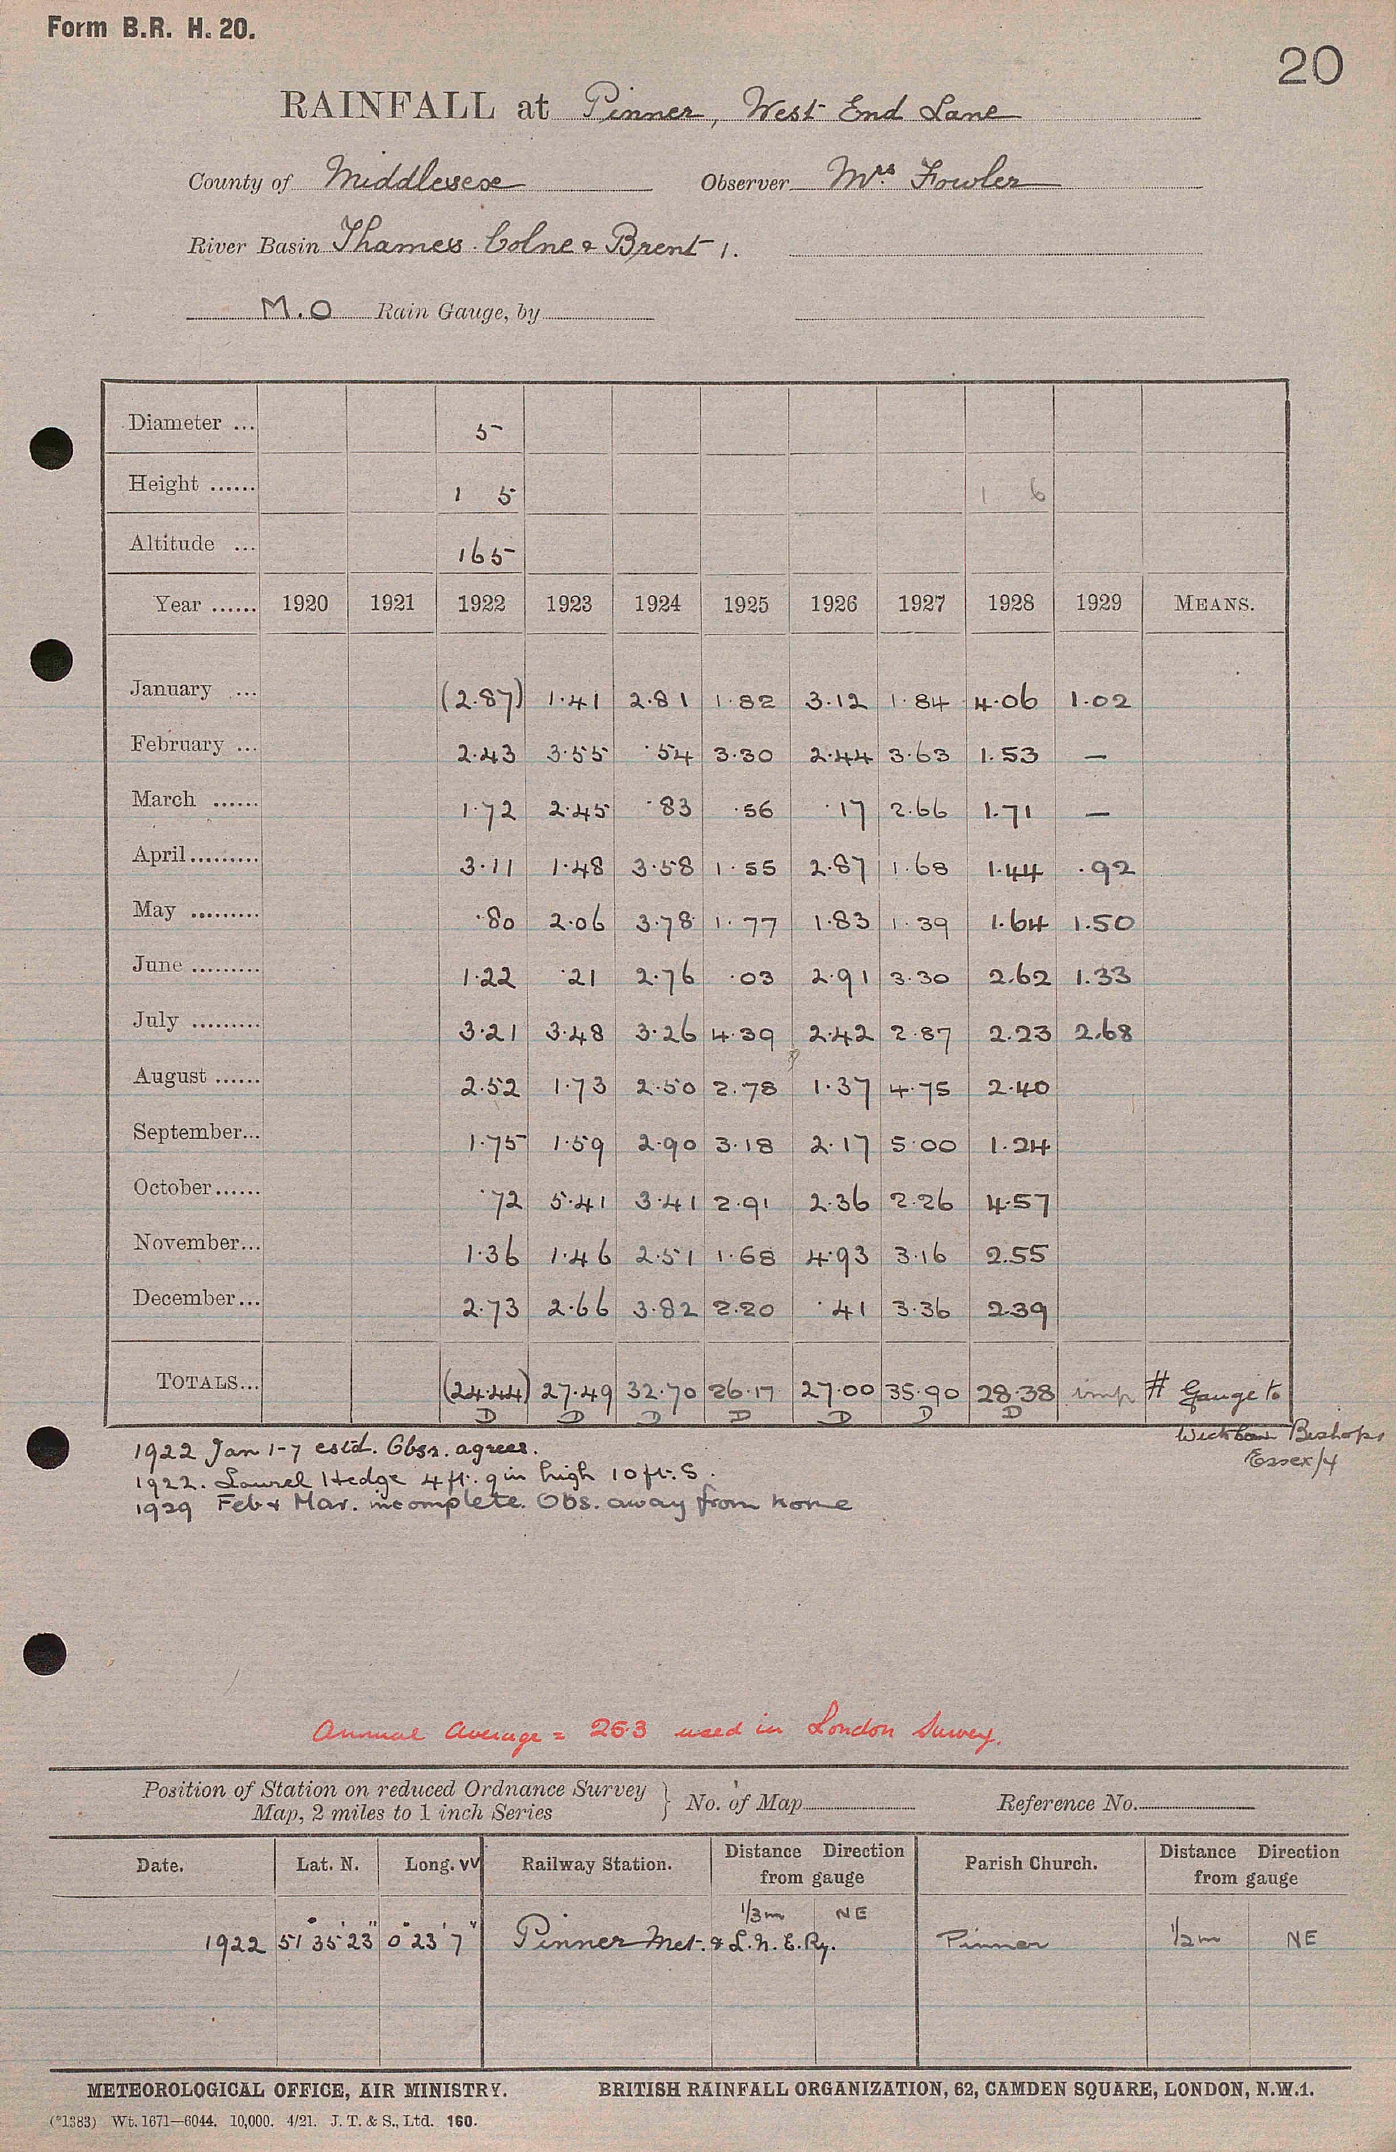 Form B.R. H. 20.
20
RAINFALL at Pinner, West End Lane
County of Middlesex Observer Mrs Fowler
River Basin Thames. Colne & Brent 1.
M.O Rain Gauge, by
Diameter ... 5
Height ...... 1 5 1 6
Altitude ... 165
Year ...... 1920 1921 1922 1923 1924 1925 1926 1927 1928 1929 MEANS.
January ... (2.87) 1.41 2.81 1.82 3.12 1.84 4.06 1.02
February ... 2.43 3.55 .54 3.30 2.44 3.63 1.53 —
March ...... 1.72 2.45 .83 .56 .17 2.66 1.71 —
April ......... 3.11 1.48 3.58 1.55 2.87 1.68 1.44 .92
May ......... .80 2.06 3.78 1.77 1.83 1.39 1.64 1.50
June ......... 1.22 .21 2.76 .03 2.91 3.30 2.62 1.33
July ......... 3.21 3.48 3.26 4.39 2.42 2.87 2.23 2.68
August ...... 2.52 1.73 2.50 2.78 1.37 4.75 2.40
September... 1.75 1.59 2.90 3.18 2.17 5.00 1.24
October...... .72 5.41 3.41 2.91 2.36 2.26 4.57
November... 1.36 1.46 2.51 1.68 4.93 3.16 2.55
December... 2.73 2.66 3.82 2.20 .41 3.36 2.39
TOTALS... (24.44) 27.49 32.70 26.17 27.00 35.90 28.38 imp # Gauge to
D D D D D D D
Wickham Bishops
Essex/4
1922 Jan 1-7 estd. Obsr. agrees.
1922. Laurel Hedge 4 ft. 9 in high 10 ft. S.
1929 Feb & Mar. incomplete. Obs. away from home
Annual Average = 26.3 used in London Survey.
Position of Station on reduced Ordnance Survey
Map, 2 miles to 1 inch Series } No. of Map Reference No.
Date. Lat. N. Long. W Railway Station. Distance Direction from gauge Parish Church. Distance Direction from gauge
1/3 m NE
1922 51° 35' 23" 0° 23' 7" Pinner Met. & L.N.E.Ry. Pinner 1/2 m NE
METEOROLOGICAL OFFICE, AIR MINISTRY. BRITISH RAINFALL ORGANIZATION, 62, CAMDEN SQUARE, LONDON, N.W.1.
(*1383) Wt. 1671—6044. 10,000. 4/21. J. T. & S., Ltd. 160.